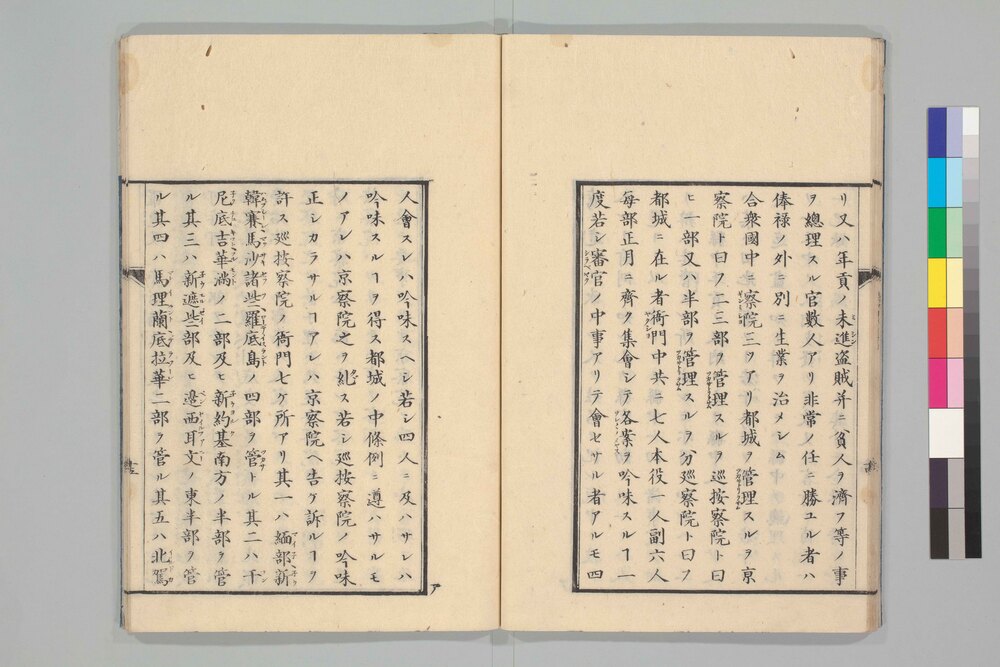 リ又ハ年貢ノ未進盗賊并ニ貧人ヲ濟フ等ノ事
ヲ總理スル官數人アリ非常ノ任ニ勝ユル者ハ
俸禄ノ外ニ別ニ生業ヲ治メシム
合衆國中ニ察院三ツアリ都城ヲ管理スルヲ京
察院ト曰フ二三部ヲ管理スルヲ巡按察院ト曰
ヒ一部又ハ半部ヲ管理スルヲ分巡察院ト曰フ
都城ニ在ル者衙門中共ニ七人本役一人副六人
毎部正月ニ齊ク集會シテ各案ヲ吟味スルヿ一
度若シ審官ノ中事アリテ會セサル者アルモ四
人會スレハ吟味スヘシ若シ四人ニ及ハサレハ
吟味スルヿヲ得ス都城ノ中條例ニ遵ハサルモ
ノアレハ京察院之ヲ糺ス若シ巡按察院ノ吟味
正シカラサルヿアレハ京察院ヘ告ケ訴ルヿヲ
許ス巡按察院ノ衙門七ケ所アリ其一ハ緬部新
韓賽馬沙諸些羅底島ノ四部ヲ管トル其二ハ干
尼底吉華満ノ二部及ヒ新約基南方ノ半部ヲ管
ル其三ハ新遮些部及ヒ邉西耳文ノ東半部ヲ管
ル其四ハ馬理蘭底拉華二部ヲ管ル其五ハ北駕